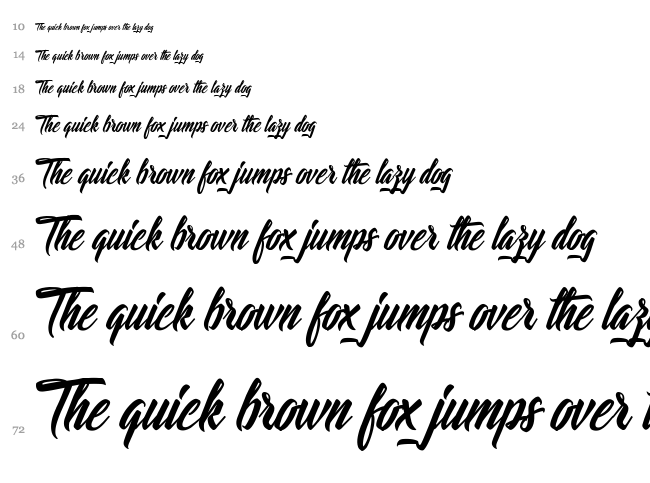 10 The quick brown fox jumps over the lazy dog
14 The quick brown fox jumps over the lazy dog
18 The quick brown fox jumps over the lazy dog
24 The quick brown fox jumps over the lazy dog
36 The quick brown fox jumps over the lazy dog
48 The quick brown fox jumps over the lazy dog
60 The quick brown fox jumps over the lazy
72 The quick brown fox jumps over